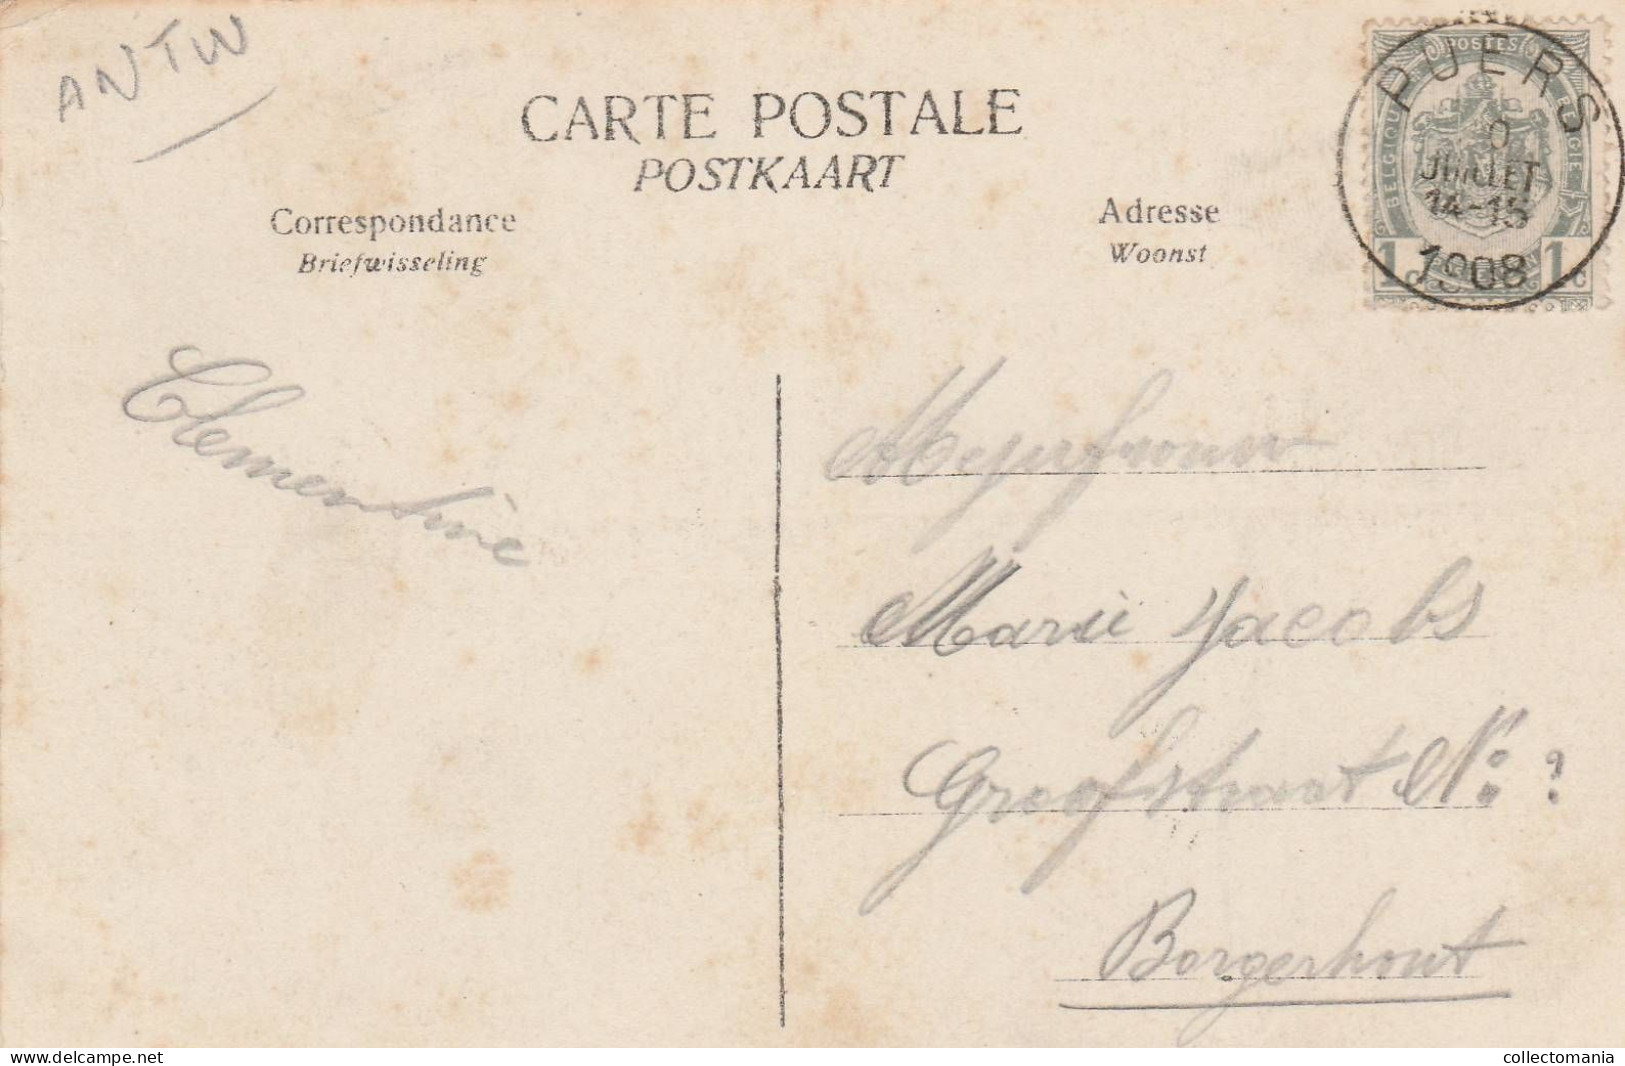 ANTW
CARTE POSTALE
POSTKAART
Correspondance
Briefwisseling
Adresse
Woonst
PUERS
POSTES
BELGIQUE
JUILLET
14-15
1908
1c 1c
Clementine
Mejufrouw
Marie Jacobs
Groofstraat No: ?
Borgerhout
delcampe.net
collectomania